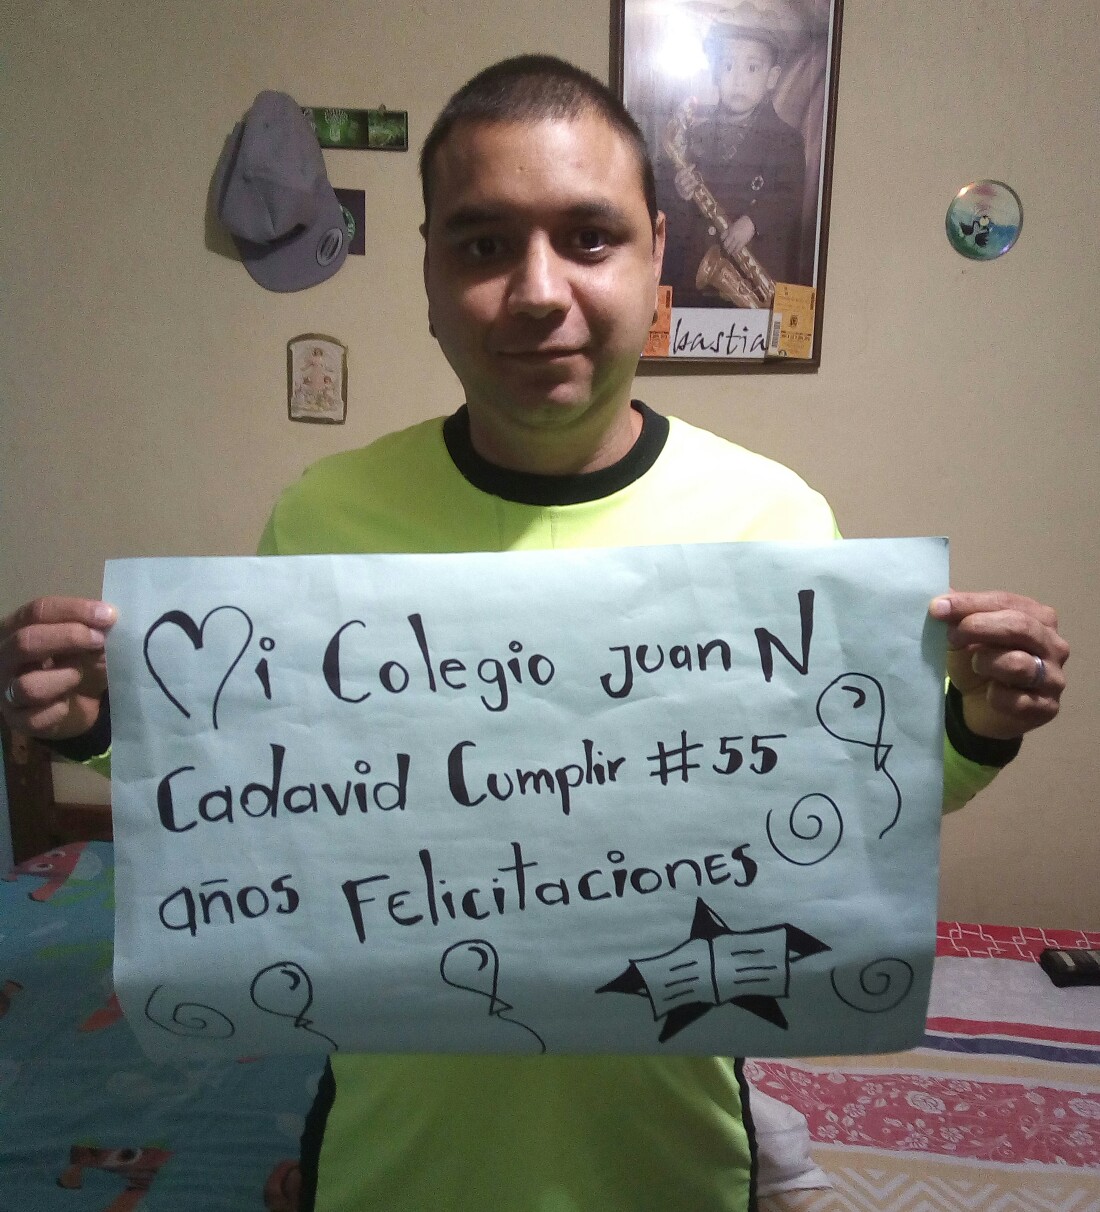 bastia
Mi Colegio Juan N
Cadavid Cumplir #55
años Felicitaciones